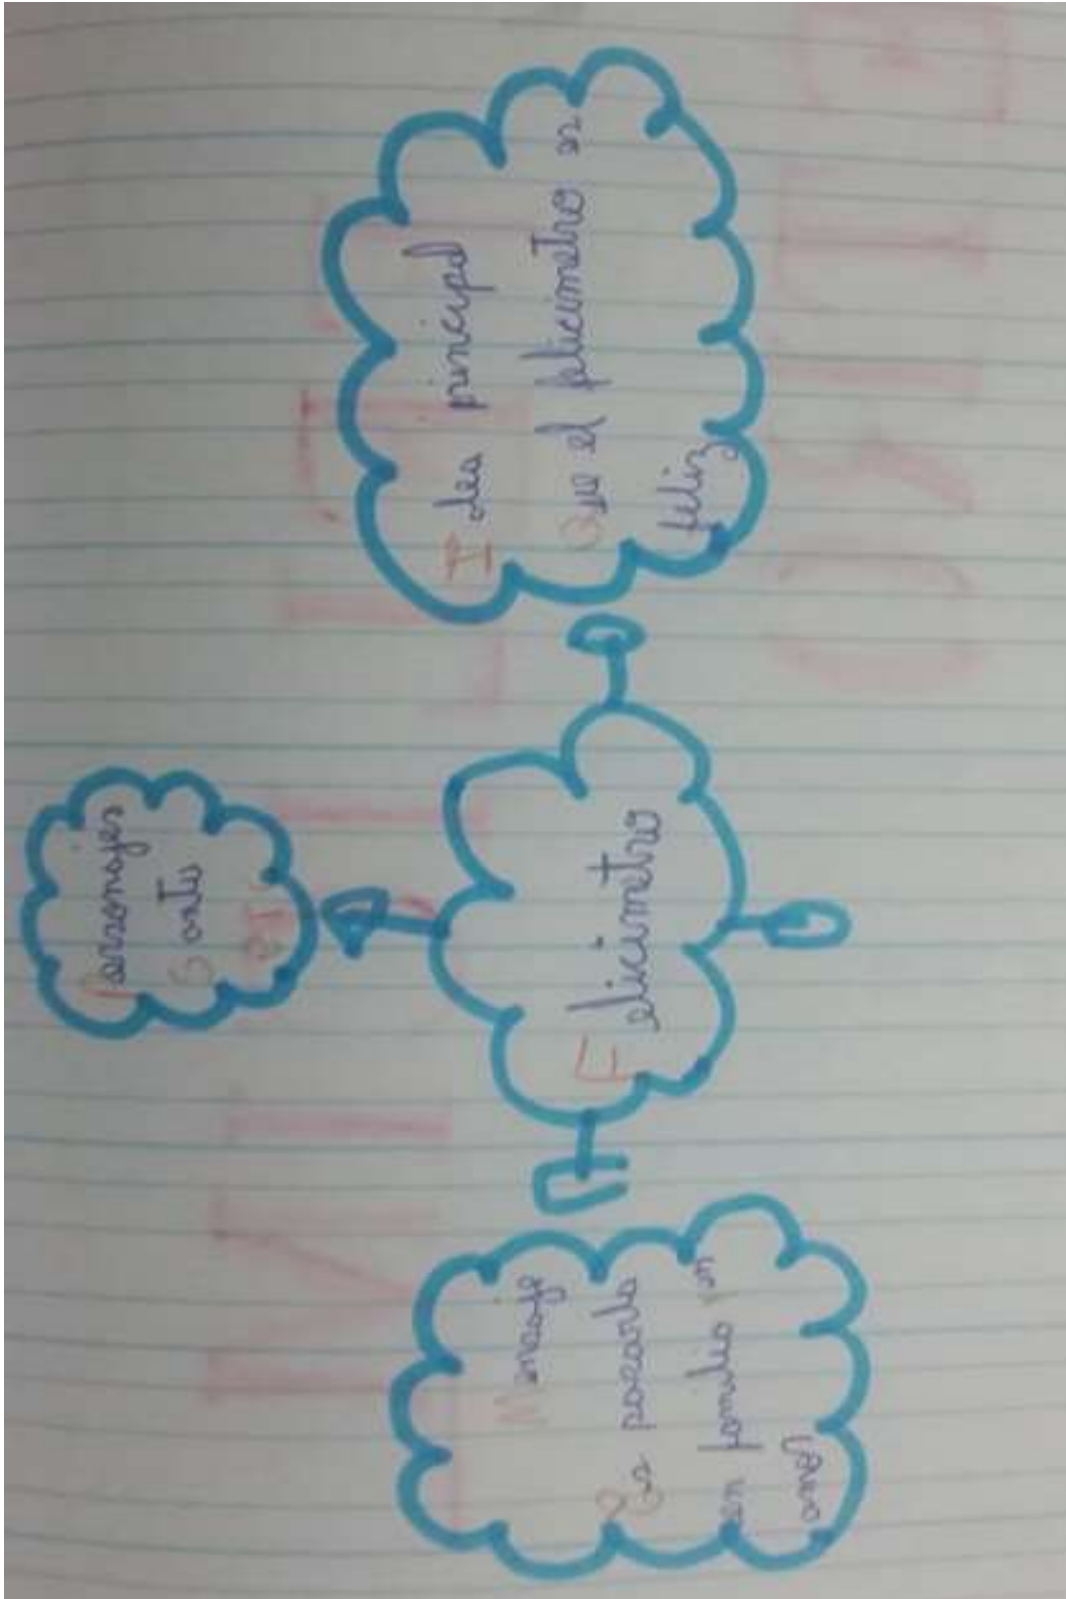 Personajes
Santa
Felicimetro
Idea principal
Que el felicimetro es
feliz
Mensaje
Es pasarla
en familia
amor